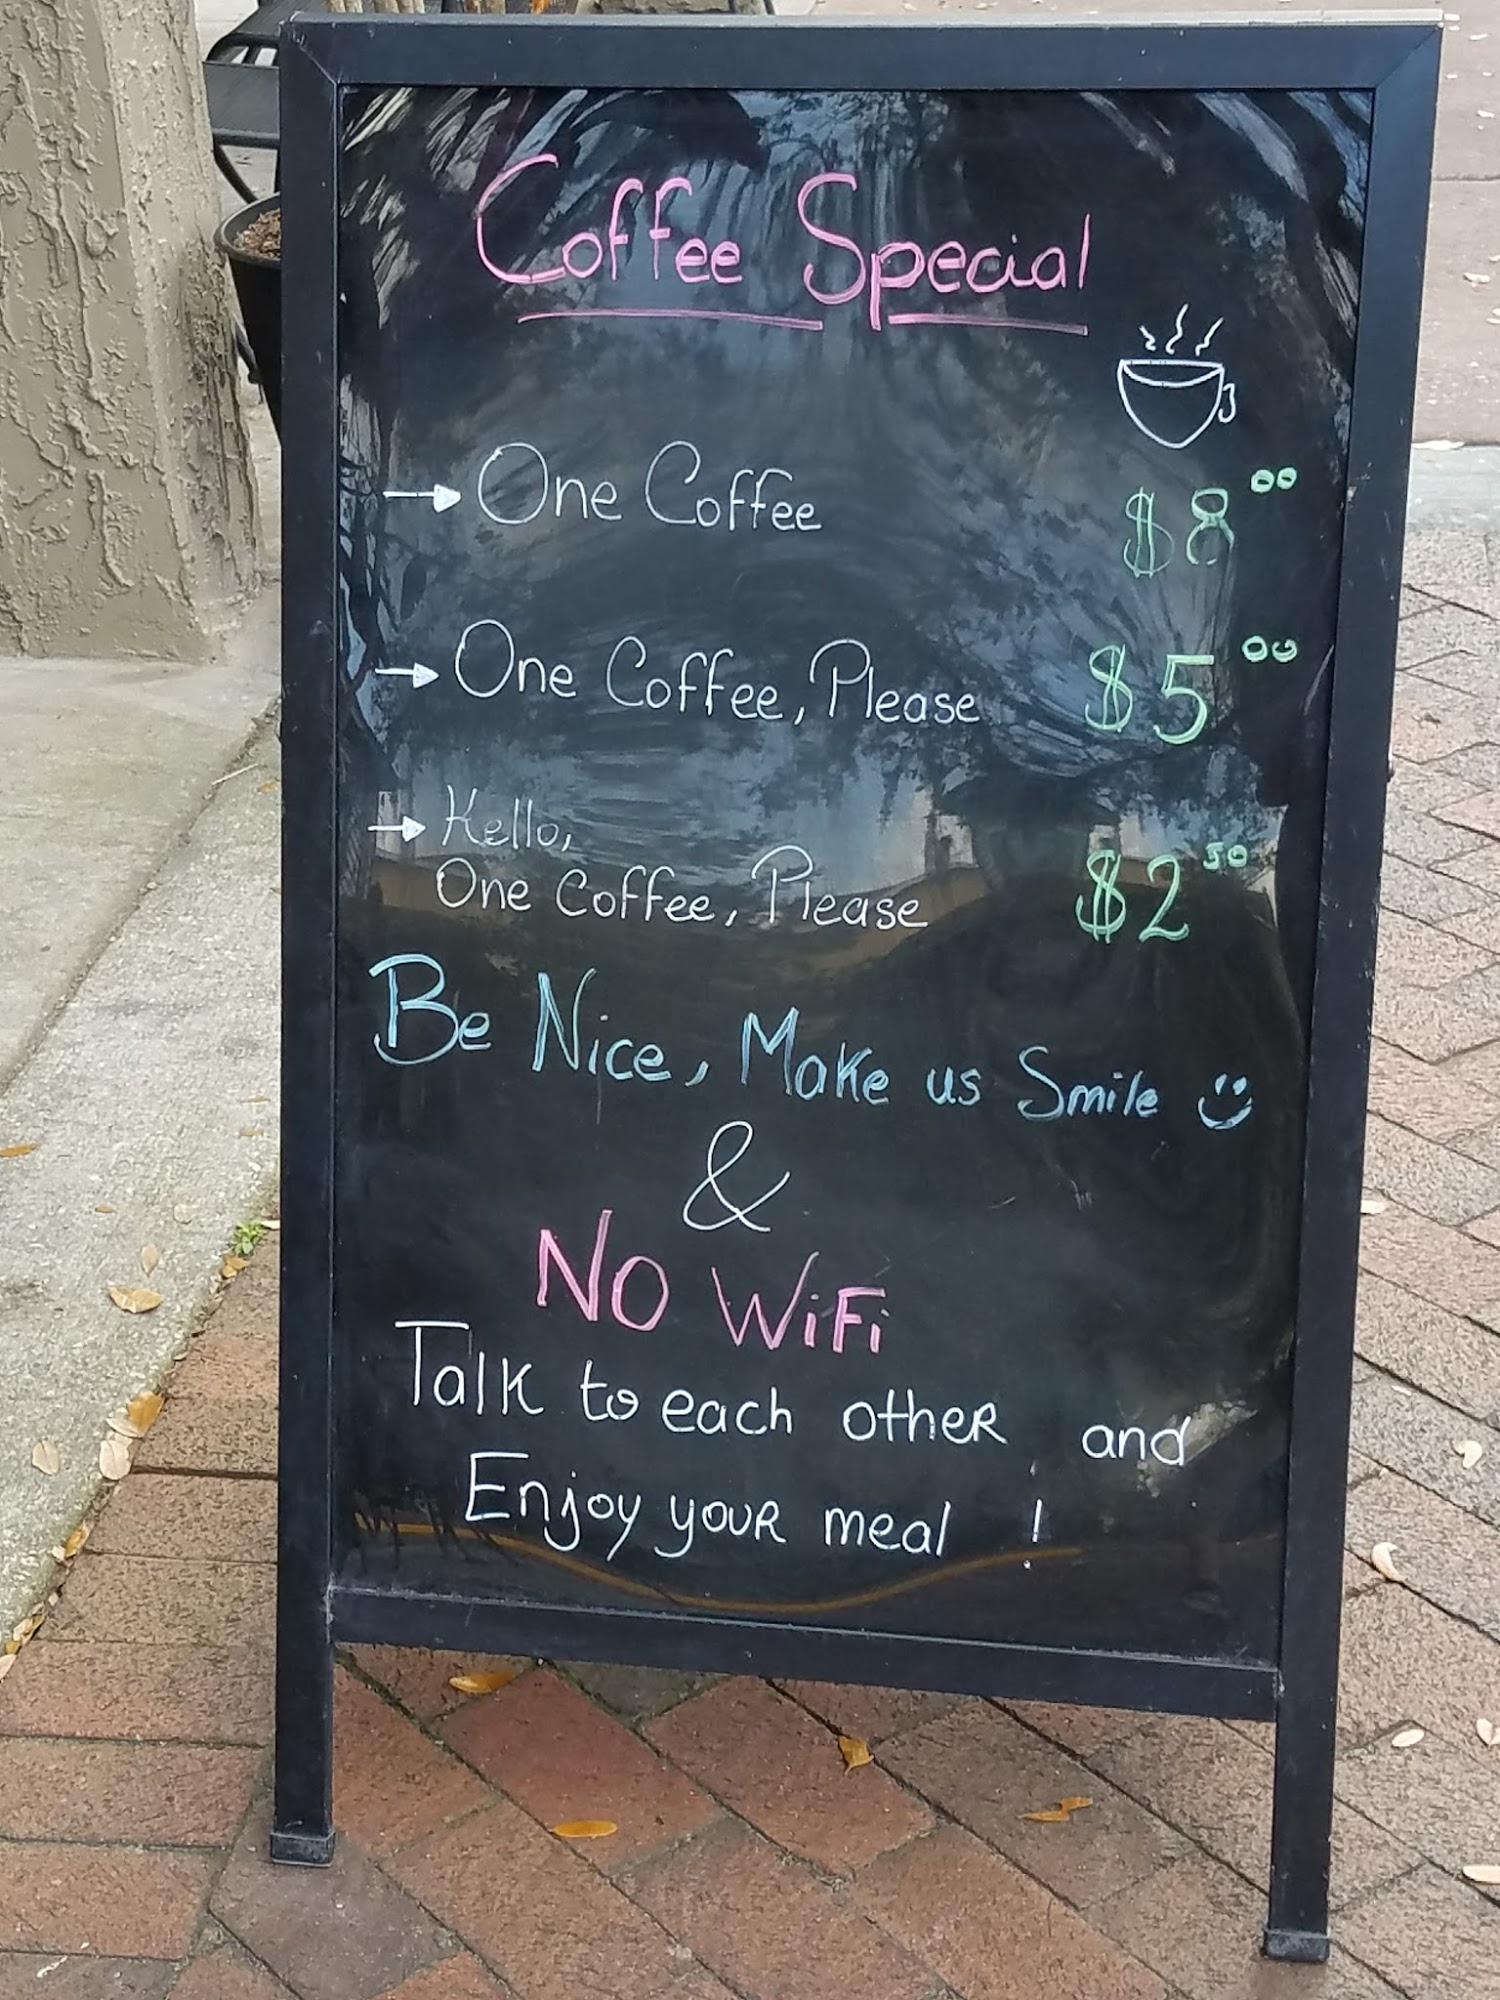 Coffee Special
→ One Coffee $8⁰⁰
→ One Coffee, Please $5⁰⁰
→ Hello,
One Coffee, Please $2⁵⁰
Be Nice, Make us Smile ☺
&
NO WiFi
Talk to each other and
Enjoy your meal !